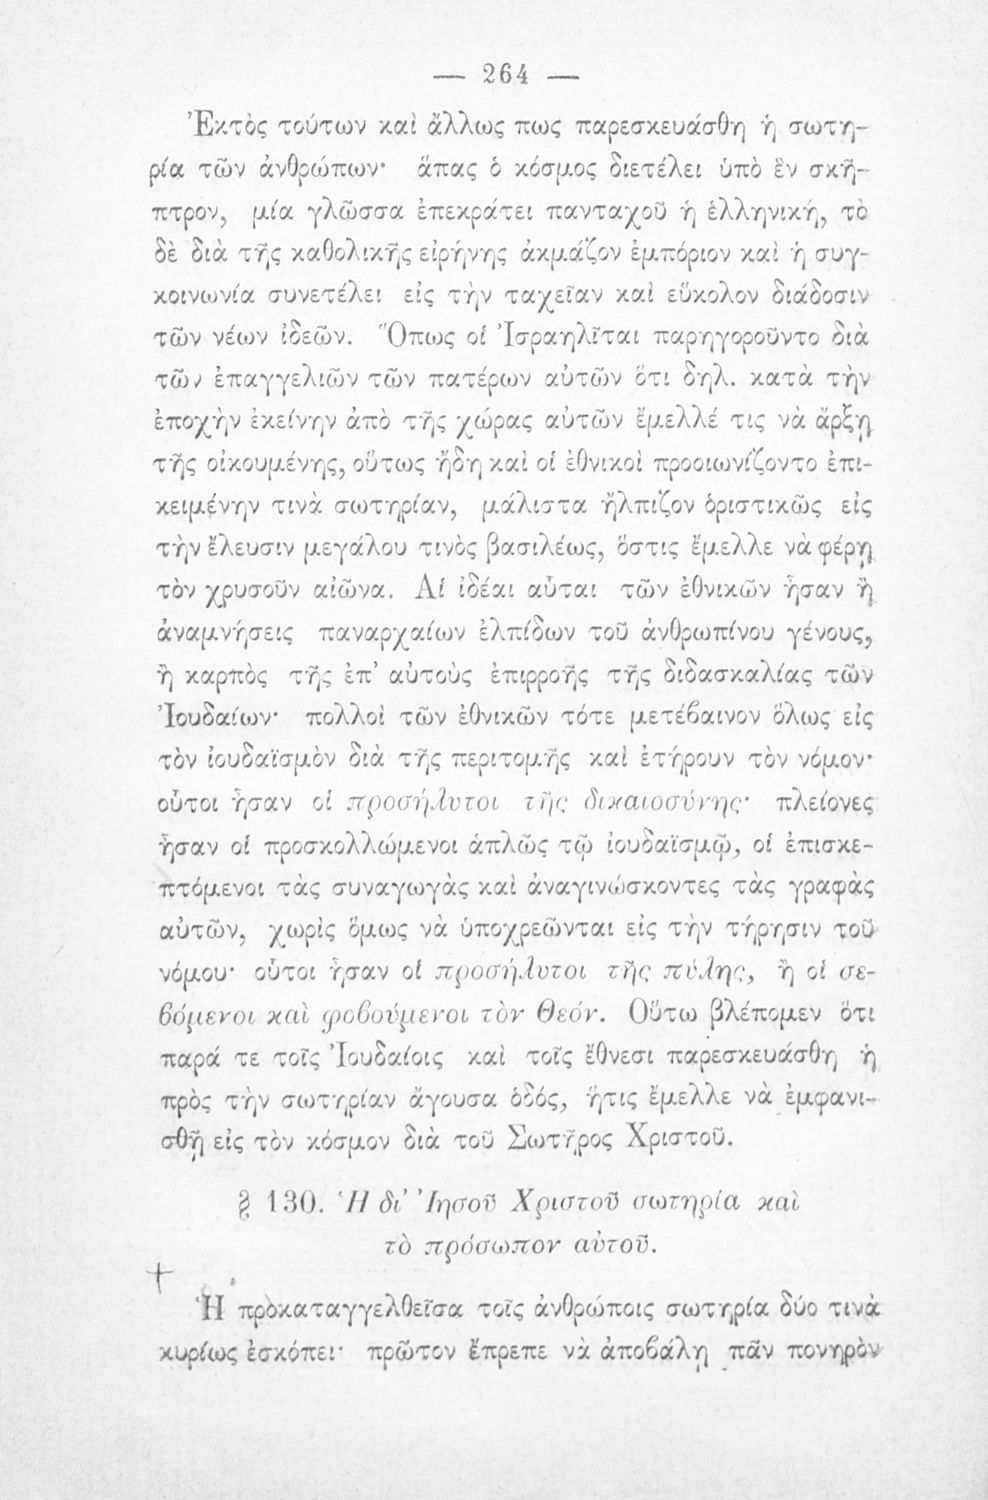 — 264 —
Ἐκτὸς τούτων καὶ ἄλλως πως παρεσκευάσθη ἡ σωτη-
ρία τῶν ἀνθρώπων· ἅπας ὁ κόσμος διετέλει ὑπὸ ἓν σκῆ-
πτρον, μία γλῶσσα ἐπεκράτει πανταχοῦ ἡ ἑλληνική, τὸ
δὲ διὰ τῆς καθολικῆς εἰρήνης ἀκμάζον ἐμπόριον καὶ ἡ συγ-
κοινωνία συνετέλει εἰς τὴν ταχεῖαν καὶ εὔκολον διάδοσιν
τῶν νέων ἰδεῶν. Ὅπως οἱ Ἰσραηλῖται παρηγοροῦντο διὰ
τῶν ἐπαγγελιῶν τῶν πατέρων αὐτῶν ὅτι δηλ. κατὰ τὴν
ἐποχὴν ἐκείνην ἀπὸ τῆς χώρας αὐτῶν ἔμελλέ τις νὰ ἄρξῃ
τῆς οἰκουμένης, οὕτως ἤδη καὶ οἱ ἐθνικοὶ προοιωνίζοντο ἐπι-
κειμένην τινὰ σωτηρίαν, μάλιστα ἤλπιζον ὁριστικῶς εἰς
τὴν ἔλευσιν μεγάλου τινὸς βασιλέως, ὅστις ἔμελλε νὰ φέρῃ
τὸν χρυσοῦν αἰῶνα. Αἱ ἰδέαι αὗται τῶν ἐθνικῶν ἦσαν ἢ
ἀναμνήσεις παναρχαίων ἐλπίδων τοῦ ἀνθρωπίνου γένους,
ἢ καρπὸς τῆς ἐπ' αὐτοὺς ἐπιρροῆς τῆς διδασκαλίας τῶν
Ἰουδαίων· πολλοὶ τῶν ἐθνικῶν τότε μετέβαινον ὅλως εἰς
τὸν ἰουδαϊσμὸν διὰ τῆς περιτομῆς καὶ ἐτήρουν τὸν νόμον·
οὗτοι ἦσαν οἱ προσήλυτοι τῆς δικαιοσύνης· πλείονες
ἦσαν οἱ προσκολλώμενοι ἁπλῶς τῷ ἰουδαϊσμῷ, οἱ ἐπισκε-
πτόμενοι τὰς συναγωγὰς καὶ ἀναγινώσκοντες τὰς γραφὰς
αὐτῶν, χωρὶς ὅμως νὰ ὑποχρεῶνται εἰς τὴν τήρησιν τοῦ
νόμου· οὗτοι ἦσαν οἱ προσήλυτοι τῆς πύλης, ἢ οἱ σε-
βόμενοι καὶ φοβούμενοι τὸν Θεόν. Οὕτω βλέπομεν ὅτι
παρά τε τοῖς Ἰουδαίοις καὶ τοῖς ἔθνεσι παρεσκευάσθη ἡ
πρὸς τὴν σωτηρίαν ἄγουσα ὁδός, ἥτις ἔμελλε νὰ ἐμφανι-
σθῇ εἰς τὸν κόσμον διὰ τοῦ Σωτῆρος Χριστοῦ.
§ 130. Ἡ δι' Ἰησοῦ Χριστοῦ σωτηρία καὶ
τὸ πρόσωπον αὐτοῦ.
Ἡ προκαταγγελθεῖσα τοῖς ἀνθρώποις σωτηρία δύο τινὰ
κυρίως ἐσκόπει· πρῶτον ἔπρεπε νὰ ἀποβάλῃ πᾶν πονηρὸν